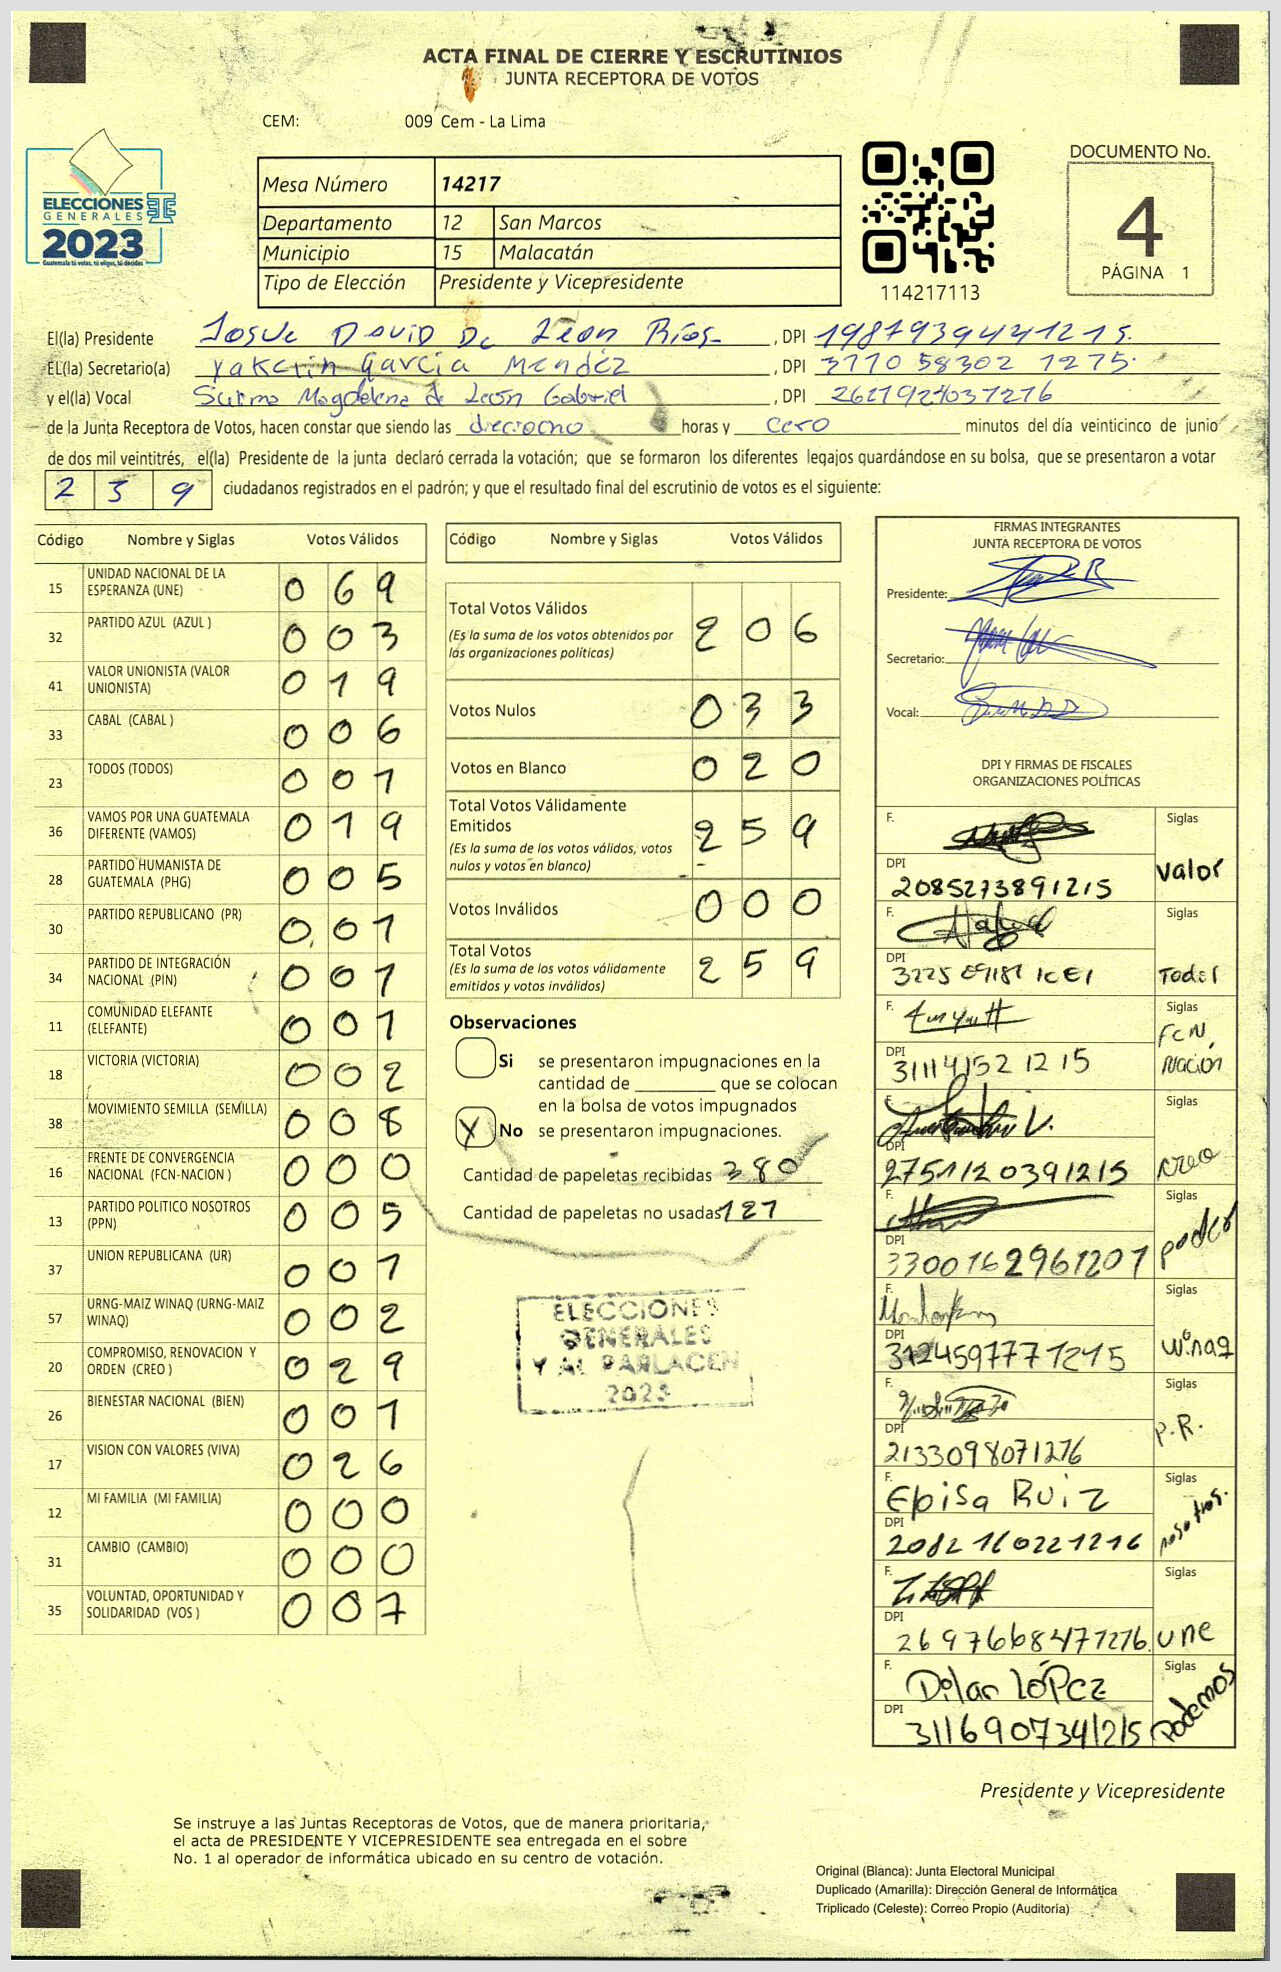 ACTA FINAL DE CIERRE Y ESCRUTINIOS
JUNTA RECEPTORA DE VOTOS
CEM: 009 Cem - La Lima
ELECCIONES
GENERALES
2023
Guatemala tú votas, tú eliges, tú decides
Mesa Número 14217
Departamento 12 San Marcos
Municipio 15 Malacatán
Tipo de Elección Presidente y Vicepresidente
114217113
DOCUMENTO No.
4
PÁGINA 1
El(la) Presidente Josue David De Leon Ríos , DPI 1987939441215.
EL(la) Secretario(a) Yakelin García Mendéz , DPI 3770 58302 1275.
y el(la) Vocal Surma Magdelena de León Gabriel , DPI 2621921037276
de la Junta Receptora de Votos, hacen constar que siendo las dieciocho horas y cero minutos del día veinticinco de junio
de dos mil veintitrés, el(la) Presidente de la junta declaró cerrada la votación; que se formaron los diferentes legajos guardándose en su bolsa, que se presentaron a votar
2 5 9 ciudadanos registrados en el padrón; y que el resultado final del escrutinio de votos es el siguiente:
Código Nombre y Siglas Votos Válidos
15 UNIDAD NACIONAL DE LA ESPERANZA (UNE) 0 6 9
32 PARTIDO AZUL (AZUL ) 0 0 3
41 VALOR UNIONISTA (VALOR UNIONISTA) 0 1 9
33 CABAL (CABAL ) 0 0 6
23 TODOS (TODOS) 0 0 1
36 VAMOS POR UNA GUATEMALA DIFERENTE (VAMOS) 0 1 9
28 PARTIDO HUMANISTA DE GUATEMALA (PHG) 0 0 5
30 PARTIDO REPUBLICANO (PR) 0 0 1
34 PARTIDO DE INTEGRACIÓN NACIONAL (PIN) 0 0 1
11 COMUNIDAD ELEFANTE (ELEFANTE) 0 0 1
18 VICTORIA (VICTORIA) 0 0 2
38 MOVIMIENTO SEMILLA (SEMILLA) 0 0 8
16 FRENTE DE CONVERGENCIA NACIONAL (FCN-NACION ) 0 0 0
13 PARTIDO POLITICO NOSOTROS (PPN) 0 0 5
37 UNION REPUBLICANA (UR) 0 0 1
57 URNG-MAIZ WINAQ (URNG-MAIZ WINAQ) 0 0 2
20 COMPROMISO, RENOVACION Y ORDEN (CREO ) 0 2 9
26 BIENESTAR NACIONAL (BIEN) 0 0 1
17 VISION CON VALORES (VIVA) 0 2 6
12 MI FAMILIA (MI FAMILIA) 0 0 0
31 CAMBIO (CAMBIO) 0 0 0
35 VOLUNTAD, OPORTUNIDAD Y SOLIDARIDAD (VOS ) 0 0 7
Código Nombre y Siglas Votos Válidos
Total Votos Válidos 2 0 6
(Es la suma de los votos obtenidos por
las organizaciones políticas)
Votos Nulos 0 3 3
Votos en Blanco 0 2 0
Total Votos Válidamente
Emitidos 2 5 9
(Es la suma de los votos válidos, votos
nulos y votos en blanco)
Votos Inválidos 0 0 0
Total Votos 2 5 9
(Es la suma de los votos válidamente
emitidos y votos inválidos)
Observaciones
Si se presentaron impugnaciones en la
cantidad de ________ que se colocan
en la bolsa de votos impugnados
X No se presentaron impugnaciones.
Cantidad de papeletas recibidas 380
Cantidad de papeletas no usadas 121
ELECCIONES
GENERALES
Y AL PARLACEN
2023
FIRMAS INTEGRANTES
JUNTA RECEPTORA DE VOTOS
Presidente:
Secretario:
Vocal:
DPI Y FIRMAS DE FISCALES
ORGANIZACIONES POLÍTICAS
F. Siglas
DPI valor
2085273891215
F. Siglas
DPI Todos
F. Siglas
FCN
DPI Nación
311141521215
F. Siglas
DPI creo
2751120391215
F. Siglas
DPI poder
3300162961201
F. Siglas
DPI winaq
3124597771215
F. Siglas
DPI P.R.
2133098071216
F. Siglas
Elisa Ruiz
DPI nosotros.
2082160221216
F. Siglas
DPI
2697668471216 une
F. Siglas
Dilan López
DPI Podemos
3116907341215
Presidente y Vicepresidente
Se instruye a las Juntas Receptoras de Votos, que de manera prioritaria,
el acta de PRESIDENTE Y VICEPRESIDENTE sea entregada en el sobre
No. 1 al operador de informática ubicado en su centro de votación.
Original (Blanca): Junta Electoral Municipal
Duplicado (Amarilla): Dirección General de Informática
Triplicado (Celeste): Correo Propio (Auditoría)